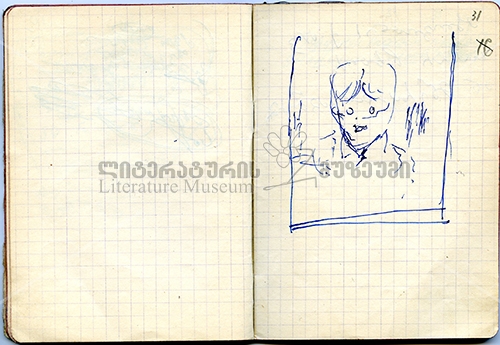 31
ლიტერატურის მუზეუმი
Literature Museum